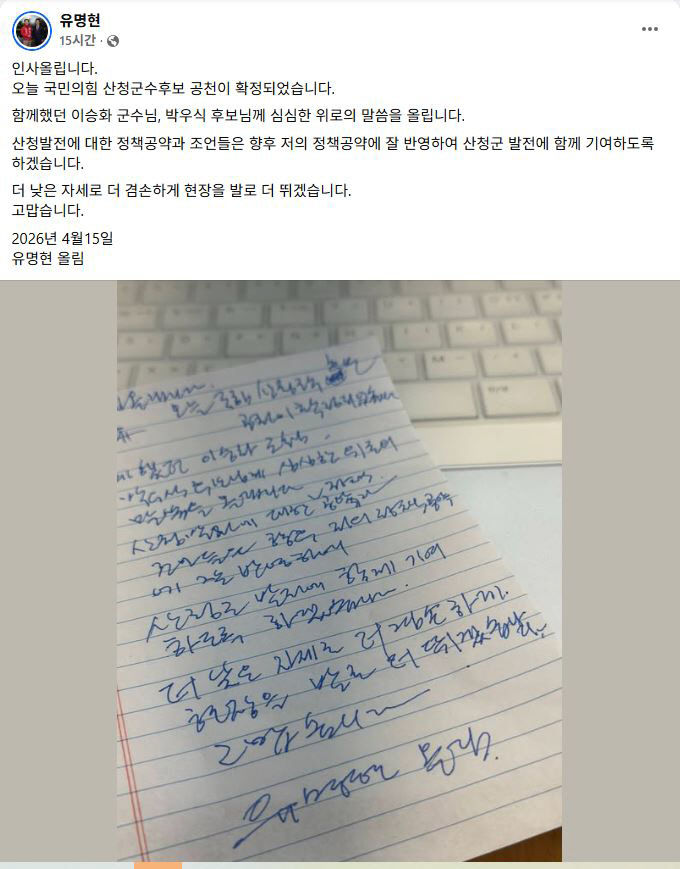 유명현
15시간 ·
인사올립니다.
오늘 국민의힘 산청군수후보 공천이 확정되었습니다.
함께했던 이승화 군수님, 박우식 후보님께 심심한 위로의 말씀을 올립니다.
산청발전에 대한 정책공약과 조언들은 향후 저의 정책공약에 잘 반영하여 산청군 발전에 함께 기여하도록
하겠습니다.
더 낮은 자세로 더 겸손하게 현장을 발로 더 뛰겠습니다.
고맙습니다.
2026년 4월15일
유명현 올림
오늘 국힘 산청군수
공천이 확정되었습니다
이승화 군수님,
심심한 위로의
말씀을 올립니다
산청발전에 대한 정책
공약과
조언들은 향후 저의 정책공약
에 잘 반영하여
산청군 발전에 함께 기여
하도록 하겠습니다.
더 낮은 자세로 더 겸손하게
현장을 발로 더 뛰겠습니다.
고맙습니다
유명현 올림.